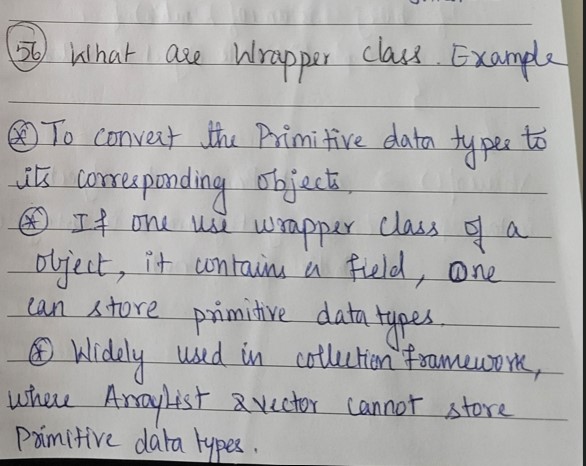 56 What are Wrapper class. Example
* To convert the Primitive data types to
its corresponding objects.
* If one use wrapper class of a
object, it contains a field, one
can store primitive data types.
* Widely used in collection framework,
where ArrayList & vector cannot store
Primitive data types.